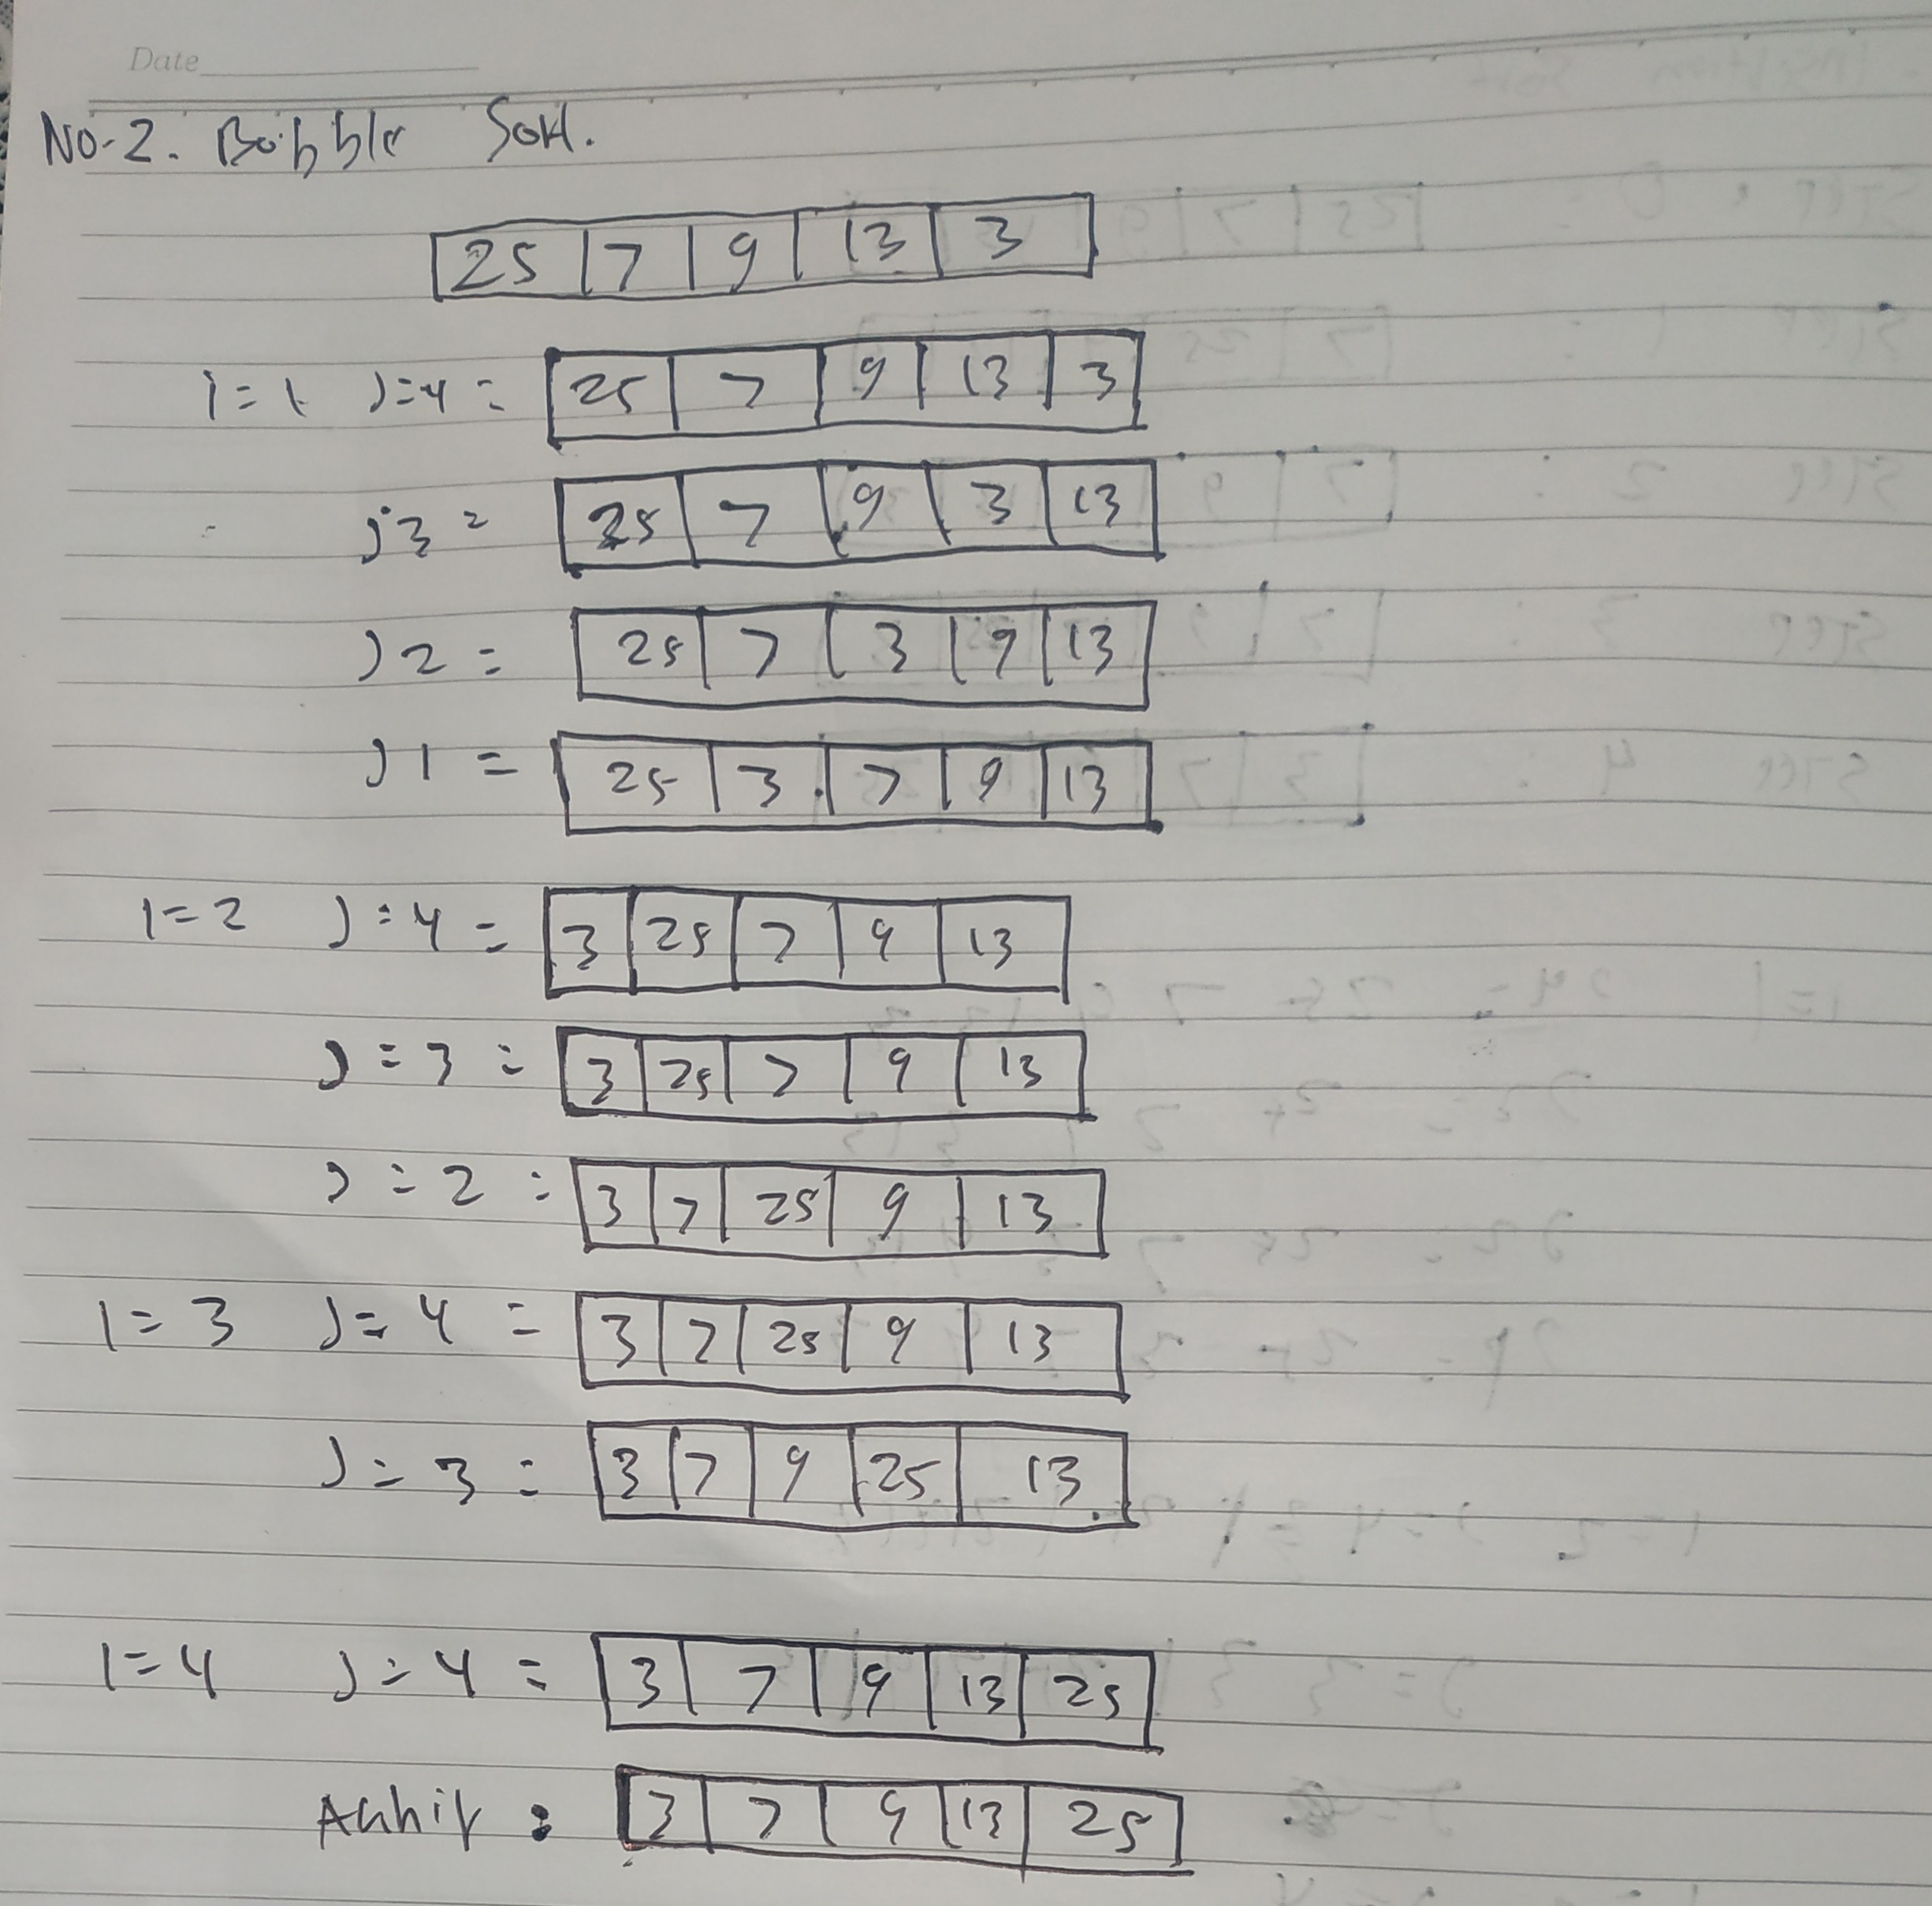 Date
No-2. Bubble Sort.
25 | 7 | 9 | 13 | 3
i=1 j=4 = 25 | 7 | 9 | 13 | 3
j3 = 25 | 7 | 9 | 3 | 13
j2 = 25 | 7 | 3 | 9 | 13
j1 = 25 | 3 | 7 | 9 | 13
i=2 j=4 = 3 | 25 | 7 | 9 | 13
j=3 = 3 | 25 | 7 | 9 | 13
j=2 = 3 | 7 | 25 | 9 | 13
i=3 j=4 = 3 | 7 | 25 | 9 | 13
j=3 = 3 | 7 | 9 | 25 | 13
i=4 j=4 = 3 | 7 | 9 | 13 | 25
Akhir : 3 | 7 | 9 | 13 | 25